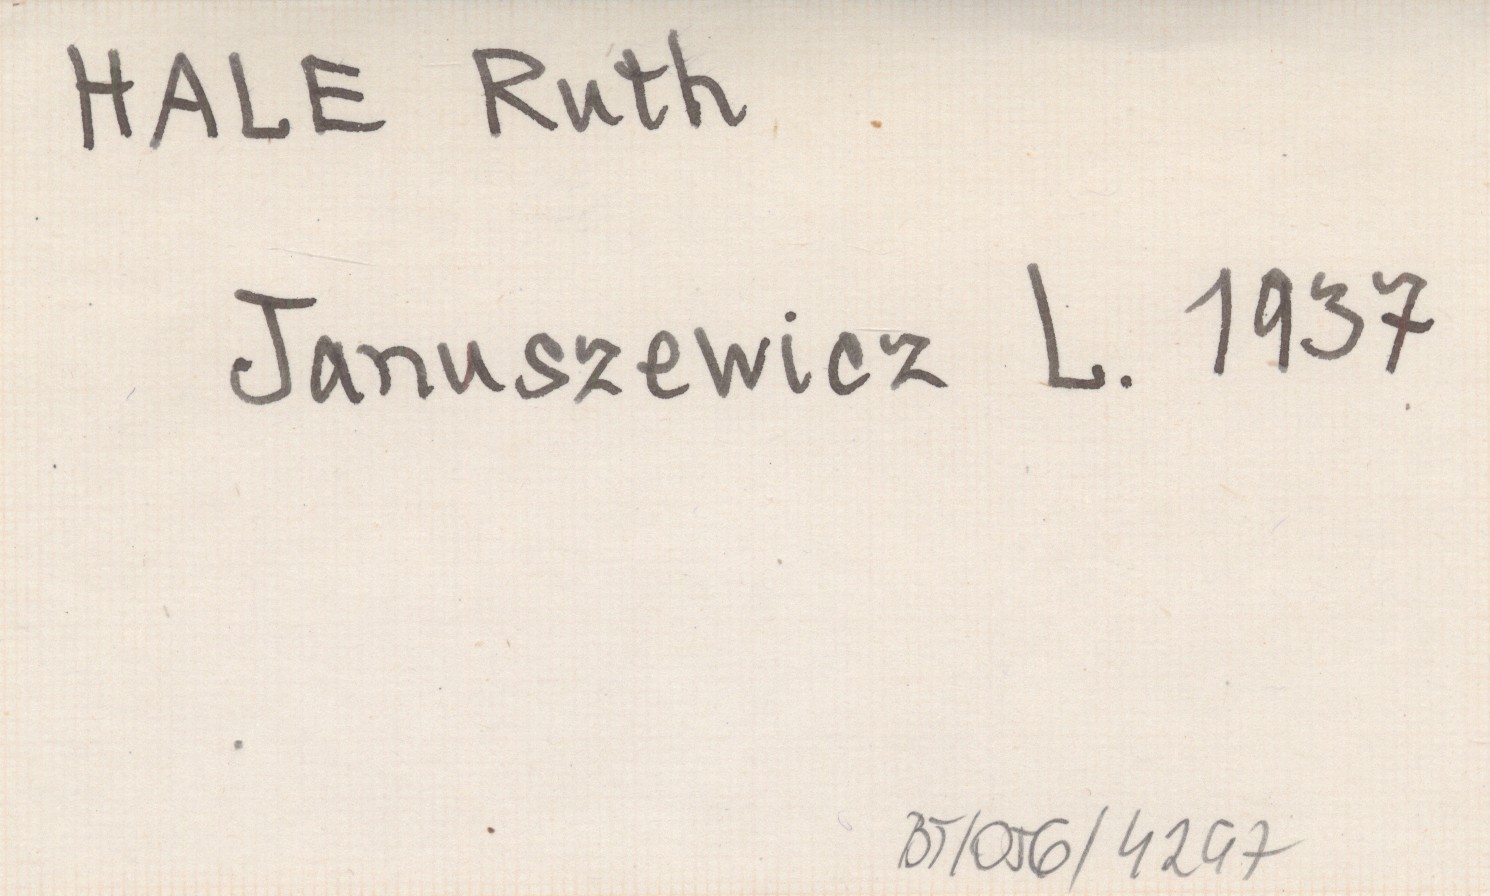 HALE Ruth
Januszewicz L. 1937
BJ/OSG/4297